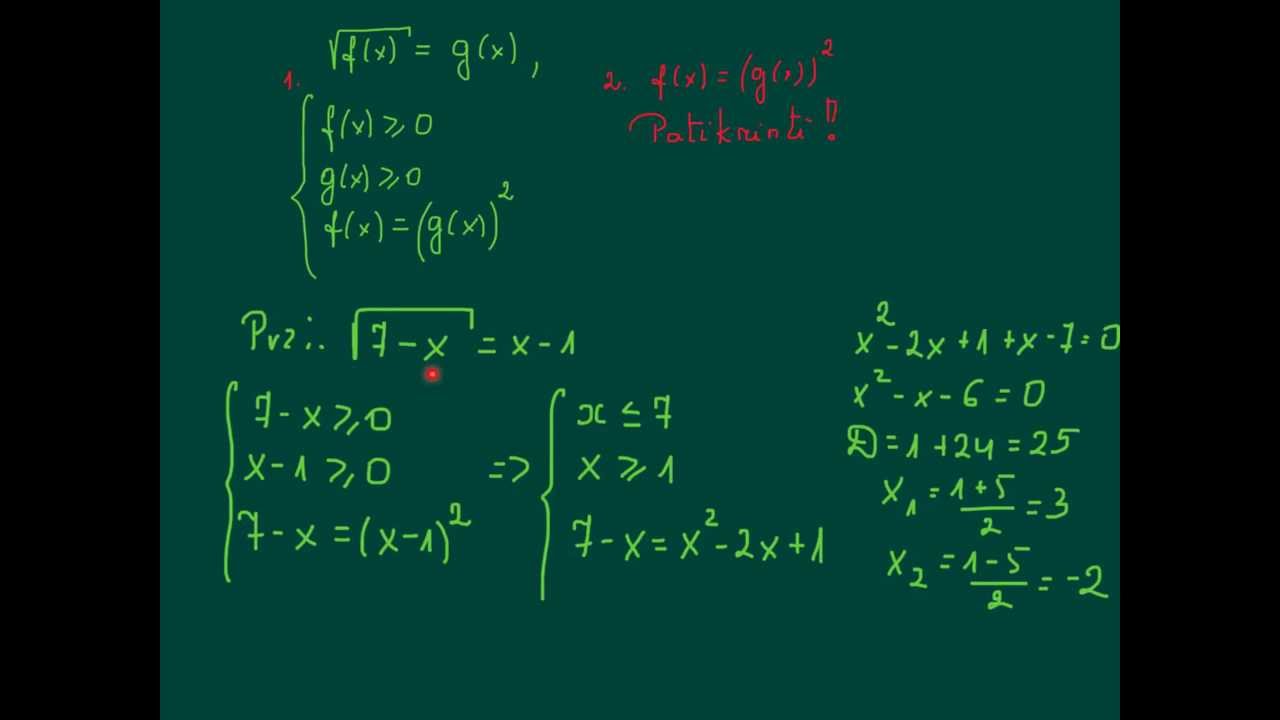 √f(x) = g(x),
1.
{ f(x) ⩾ 0
g(x) ⩾ 0
f(x) = (g(x))²
2. f(x) = (g(x))²
Patikrinti!!
Pvz.: √7-x = x-1
{ 7-x ⩾ 0
x-1 ⩾ 0
7-x = (x-1)²
=> { x ≤ 7
x ⩾ 1
7-x = x²-2x+1
x²-2x+1+x-7=0
x²-x-6=0
D=1+24=25
x₁ = (1+5)/2 = 3
x₂ = (1-5)/2 = -2